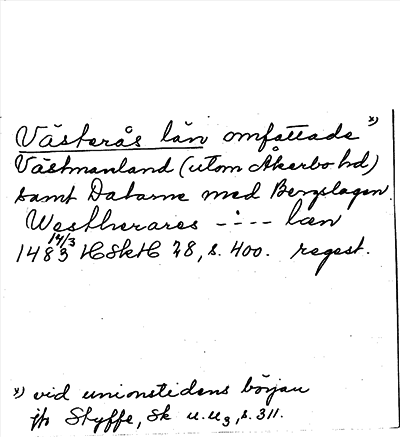 Västerås län omfattade x)
Västmanland (utom Åkerbo hd)
samt Dalarne med Bergslagen.
Westherares -:-- læn
1483 14/3 HSkH 78, s. 400. regest.
x) vid unionstidens början
jfr Styffe, Sk u. u3, s. 311.